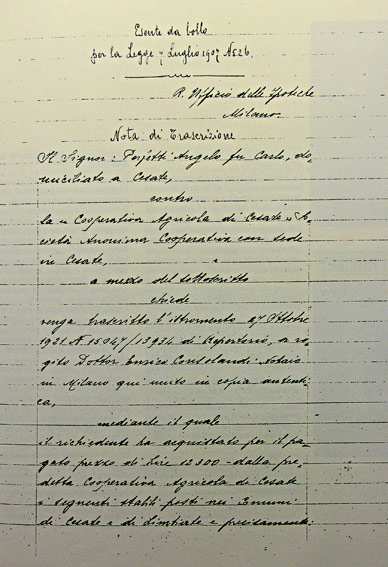 Esente da bollo
per la Legge 7 Luglio 1907 N. 526.
R. Ufficio delle Ipoteche
Milano.
Nota di Trascrizione
Il Signor: Angelo fu Carlo, do-
miciliato a Cesate,
contro
la "Cooperativa Agricola di Cesate" So-
cietà Anonima Cooperativa con sede
in Cesate,
a mezzo del sottoscritto
chiede
venga trascritto l'istromento 27 Ottobre
1921 N. 15047/13934 di Repertorio, a ro-
gito Dottor Enrico Notaio
in Milano qui unito in copia autenti-
ca,
mediante il quale
il richiedente ha acquistato per il pa-
gato prezzo di Lire 12800 - dalla pre-
detta Cooperativa Agricola di Cesate
i seguenti stabili posti nei Comuni
di Cesate e di Limbiate e precisamente: